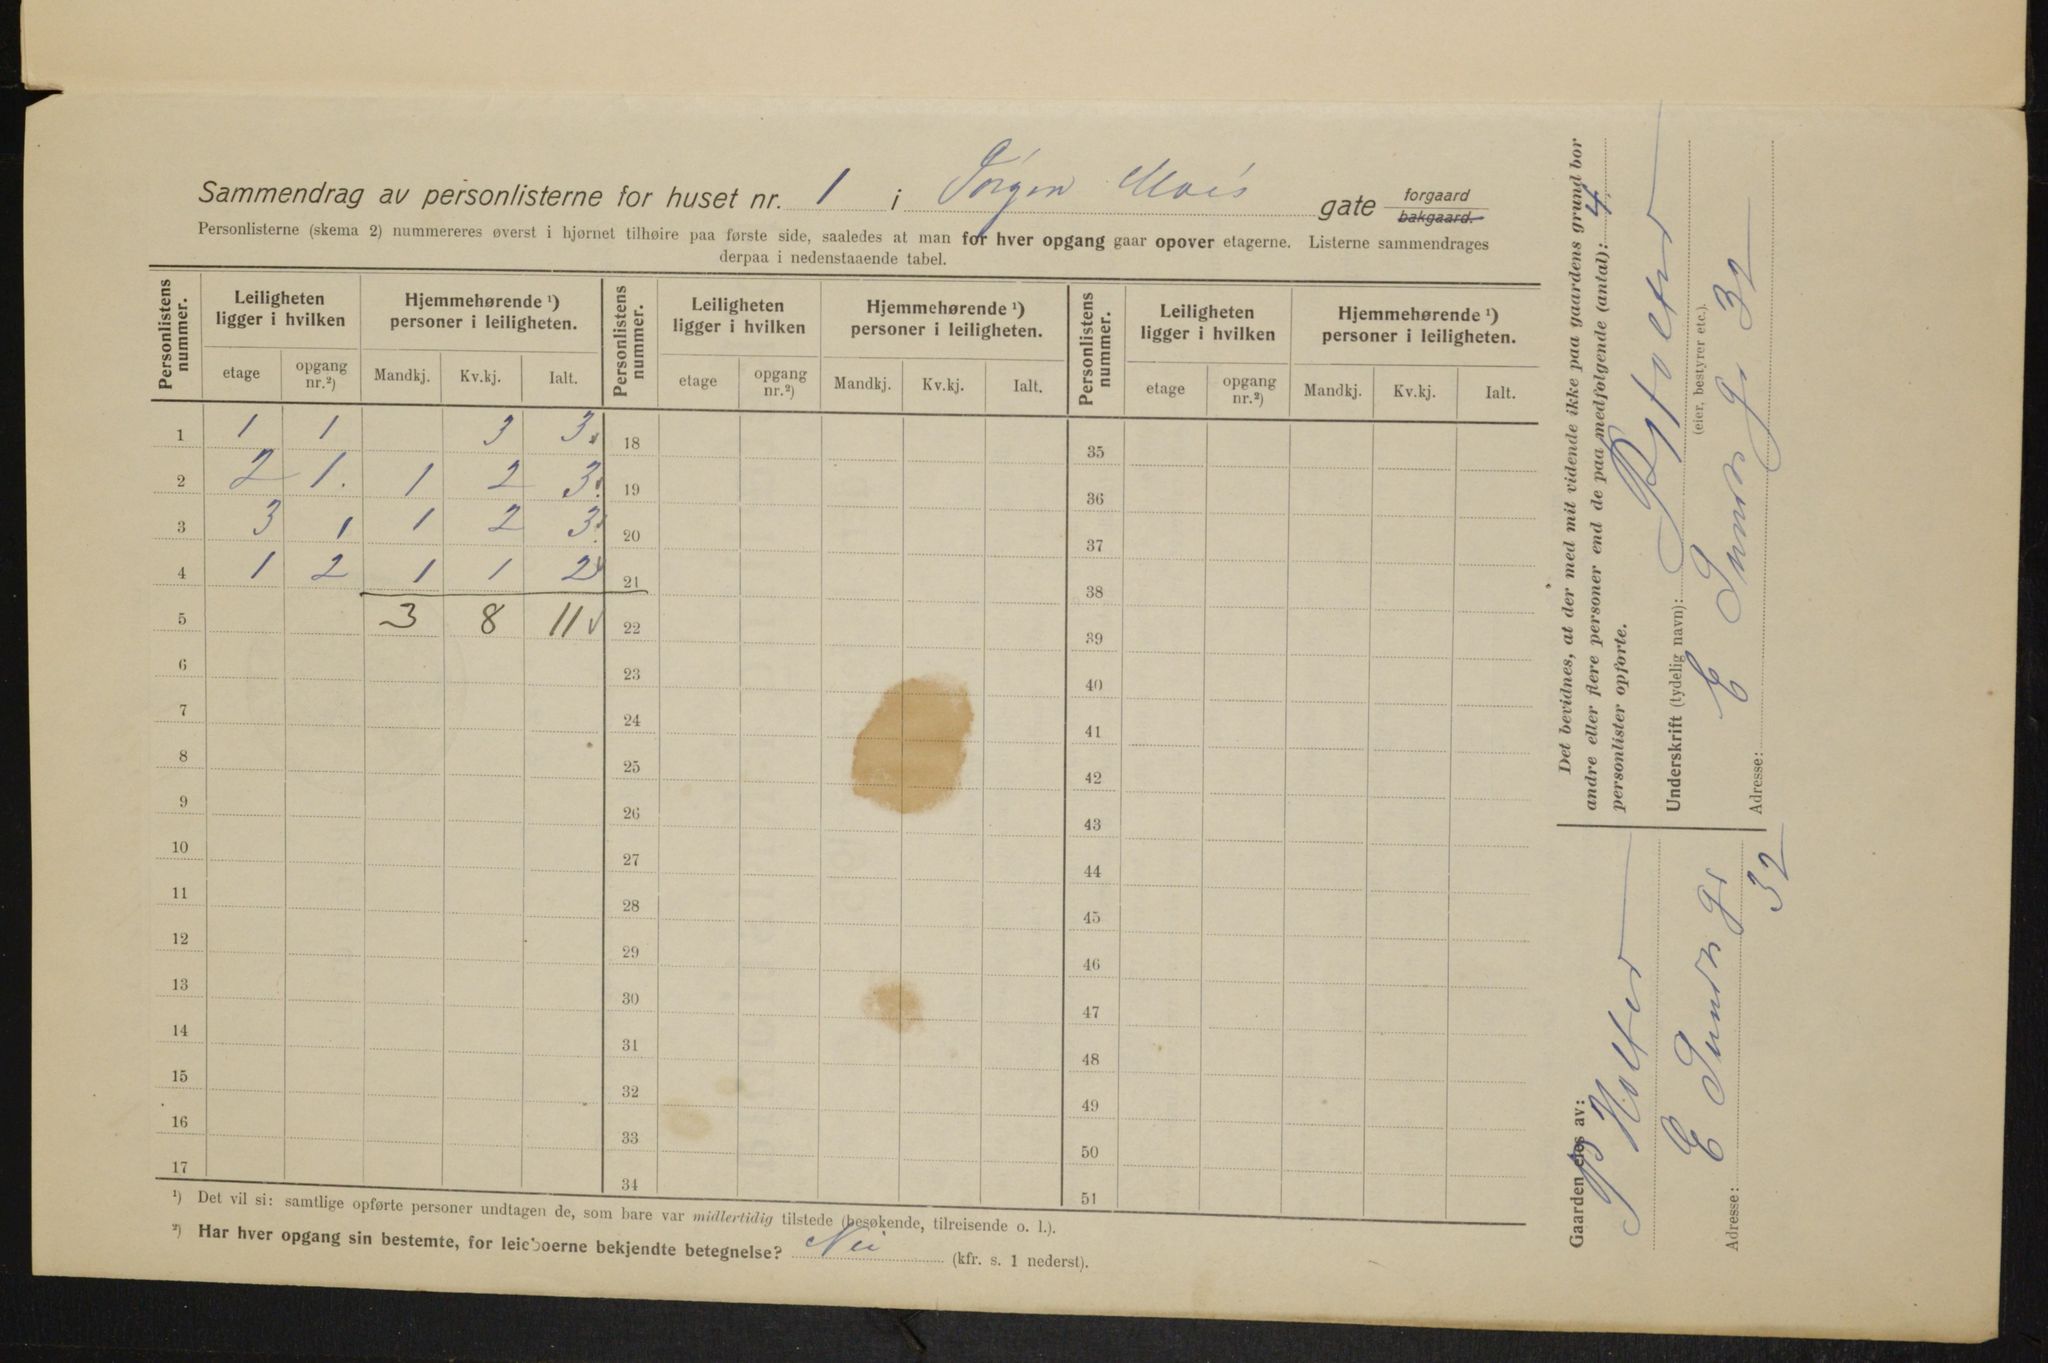 Sammendrag av personlisterne for huset nr. 1 i Jørgen Moe's gate forgaard bakgaard.
Personlisterne (skema 2) nummereres øverst i hjørnet tilhøire paa første side, saaledes at man for hver opgang gaar opover etagerne. Listerne sammendrages
derpaa i nedenstaaende tabel.
Personlistens nummer. Leiligheten ligger i hvilken Hjemmehørende ¹) personer i leiligheten. Personlistens nummer. Leiligheten ligger i hvilken Hjemmehørende ¹) personer i leiligheten. Personlistens nummer. Leiligheten ligger i hvilken Hjemmehørende ¹) personer i leiligheten.
etage opgang nr.²) Mandkj. Kv.kj. Ialt. etage opgang nr.²) Mandkj. Kv.kj. Ialt. etage opgang nr.²) Mandkj. Kv.kj. Ialt.
1 1 1 3 3 18 35
2 2 1. 1 2 3 19 36
3 3 1 1 2 3 20 37
4 1 2 1 1 2 21 38
5 3 8 11 22 39
6 23 40
7 24 41
8 25 42
9 26 43
10 27 44
11 28 45
12 29 46
13 30 47
14 31 48
15 32 49
16 33 50
17 34 51
¹) Det vil si: samtlige opførte personer undtagen de, som bare var midlertidig tilstede (besøkende, tilreisende o. l.).
²) Har hver opgang sin bestemte, for leieboerne bekjendte betegnelse? Nei (kfr. s. 1 nederst).
Det bevidnes, at der med mit vidende ikke paa gaardens grund bor
andre eller flere personer end de paa medfølgende (antal): 4
personlister opførte.
Underskrift (tydelig navn): P Holter
(eier, bestyrer etc.).
Adresse: E Sunds g. 32
Gaarden eies av:
P Holter
Adresse: E Sunds g.
32